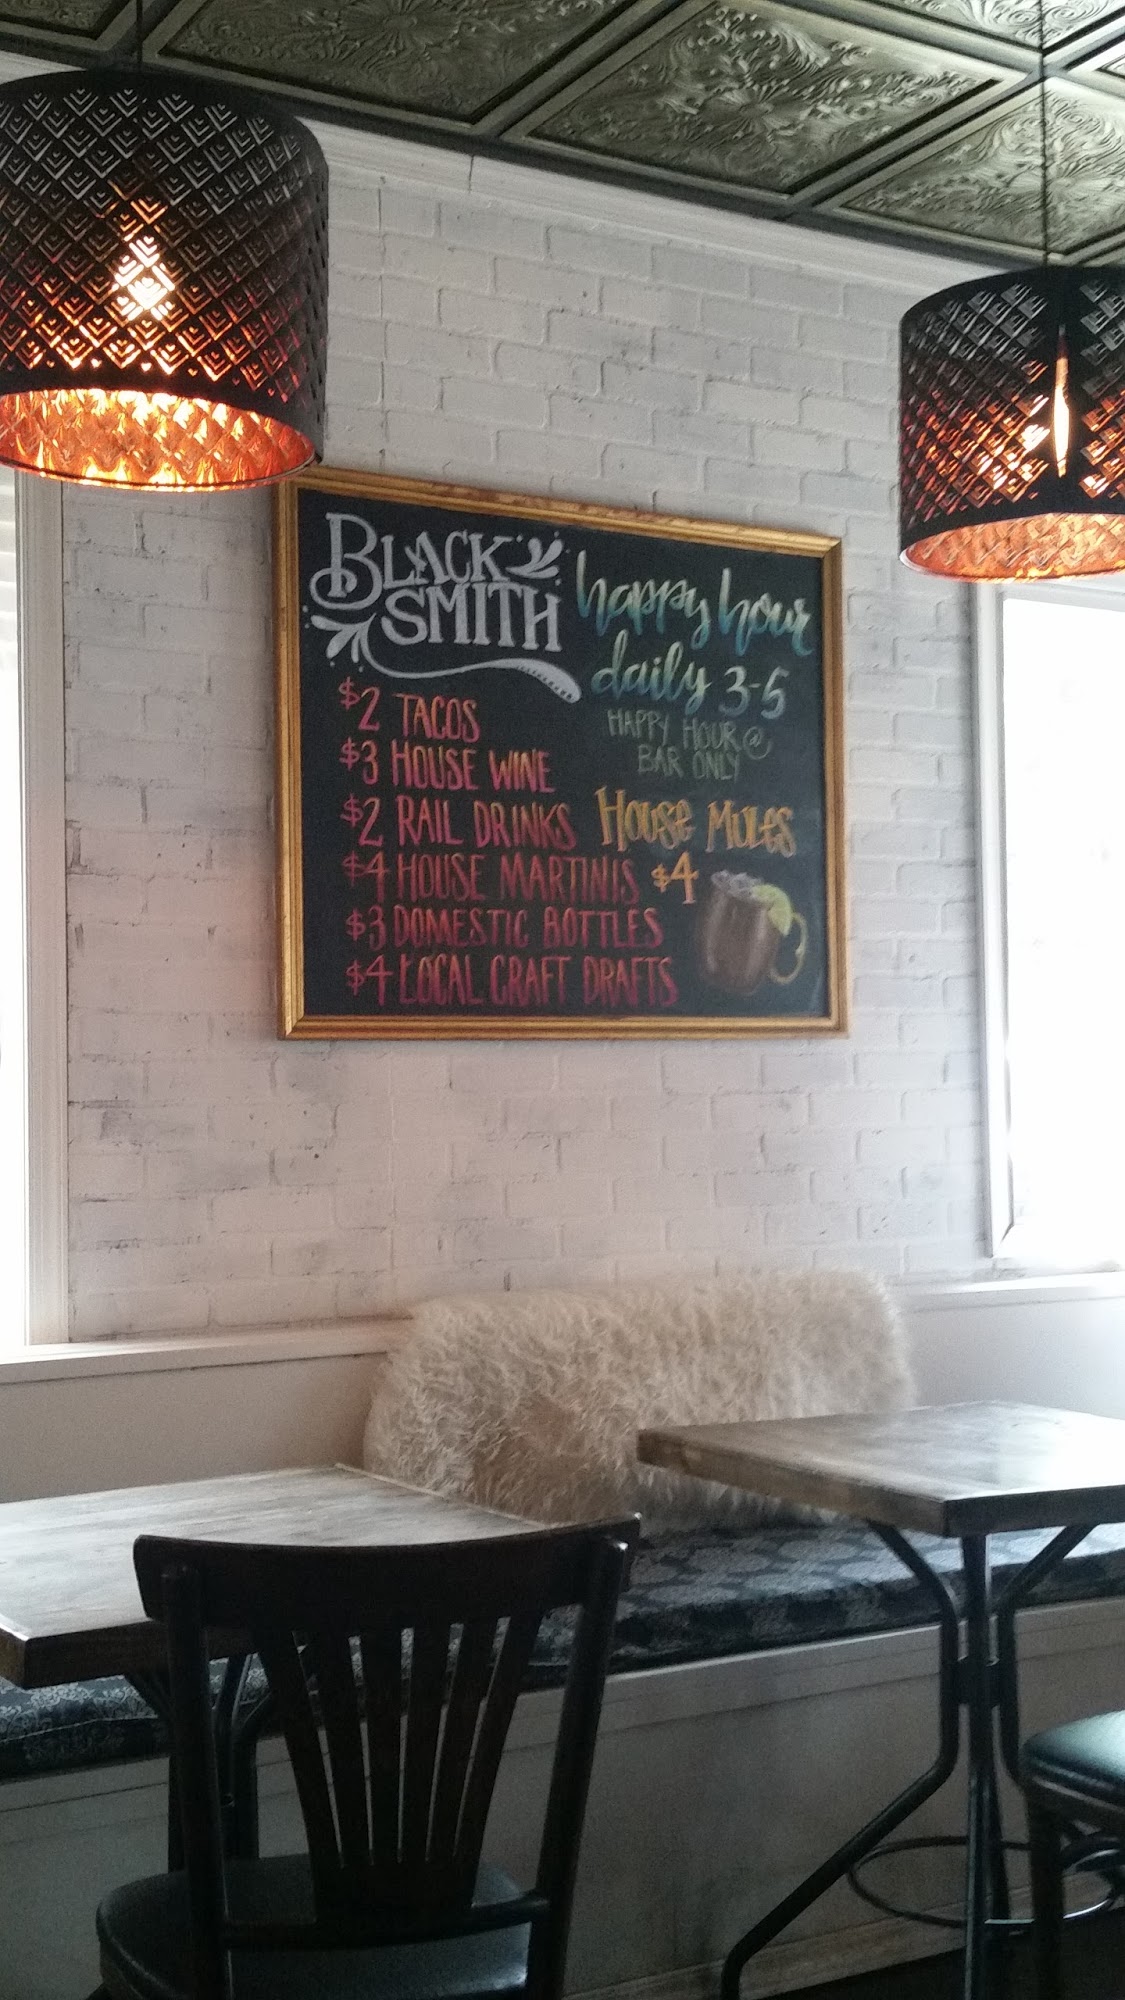 BLACK
SMITH
$2 TACOS
$3 HOUSE WINE
$2 RAIL DRINKS
$4 HOUSE MARTINIS
$3 DOMESTIC BOTTLES
$4 LOCAL CRAFT DRAFTS
happy hour
daily 3-5
HAPPY HOUR @
BAR ONLY
HOUSE MULES
$4